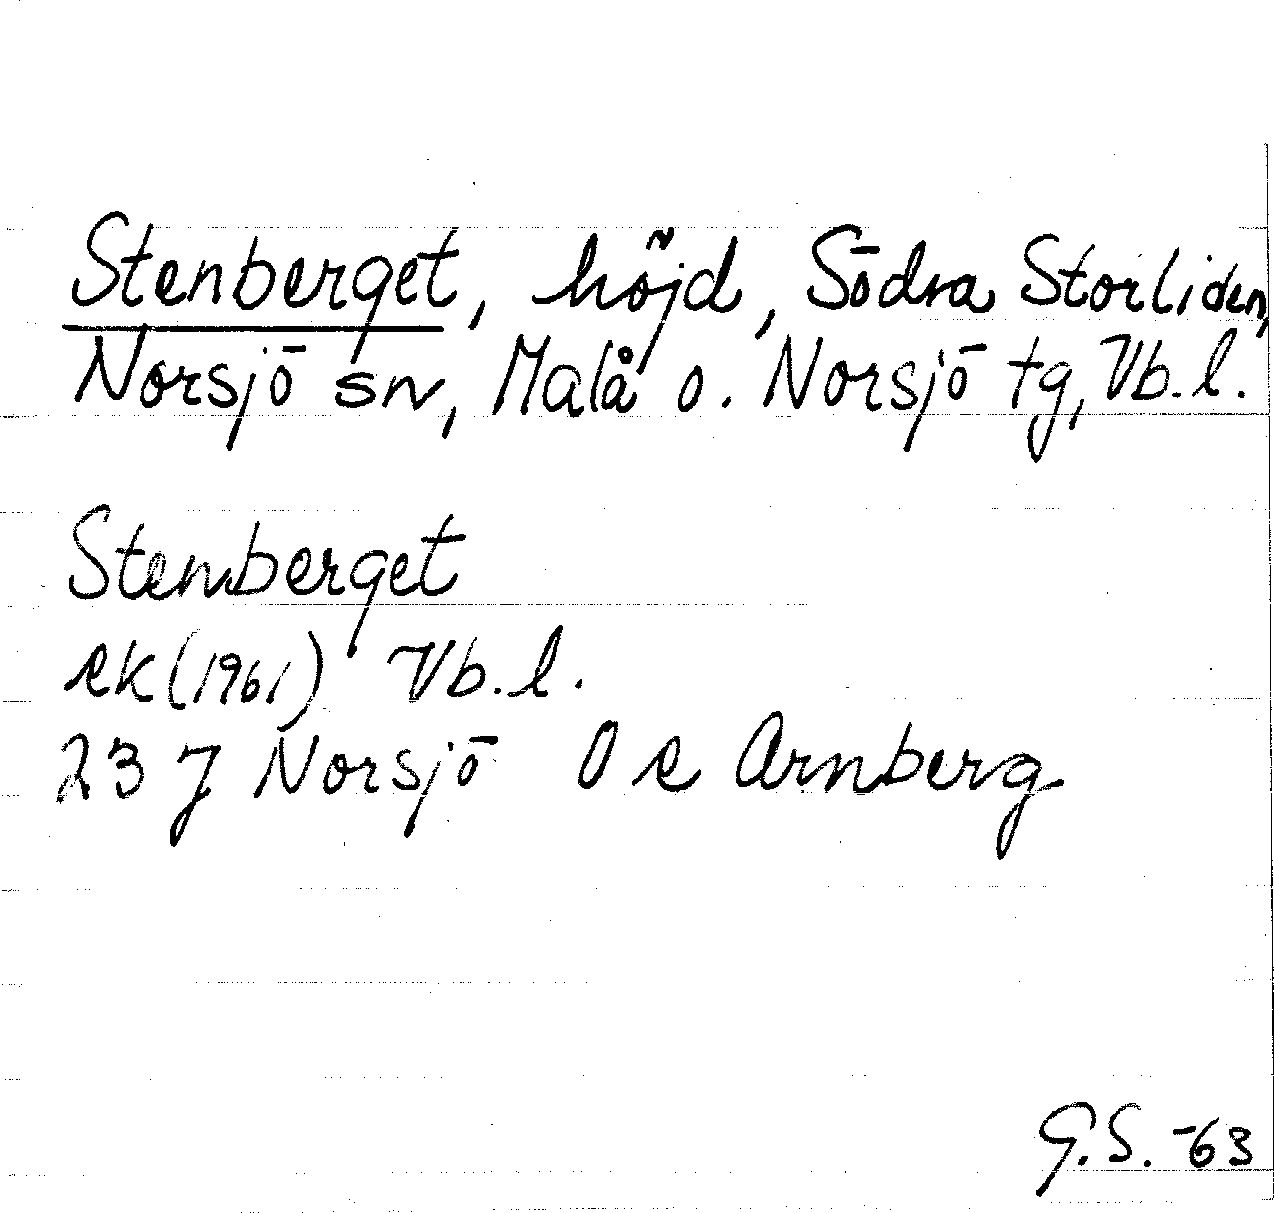 Stenberget, höjd, Södra Storliden,
Norsjö sn, Malå o. Norsjö tg, Vb. l.
Stenberget
ek (1961) Vb. l.
23 J Norsjö O e Arnberg
G.S. -63